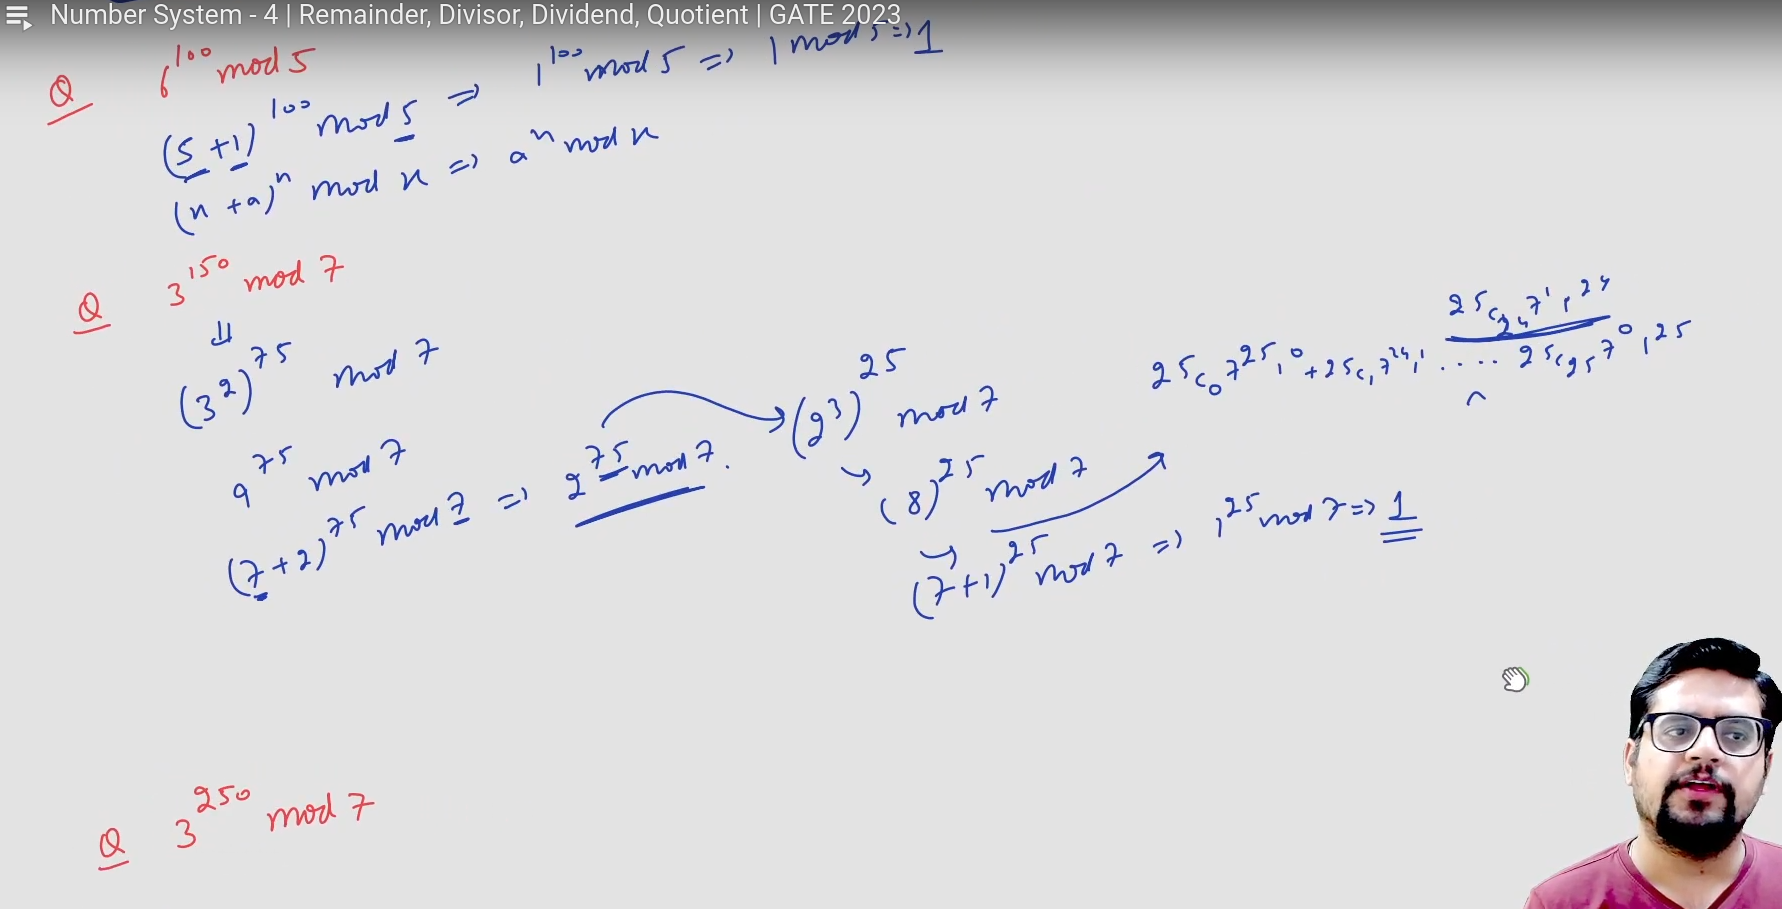 Number System - 4 | Remainder, Divisor, Dividend, Quotient | GATE 2023
Q 6^100 mod 5
(5+1)^100 mod 5 => 1^100 mod 5 => 1 mod 5 => 1
(n+a)^n mod n => a^n mod n
Q 3^150 mod 7
⇓
(3^2)^75 mod 7
9^75 mod 7
(7+2)^75 mod 7 => 2^75 mod 7.
(2^3)^25 mod 7
(8)^25 mod 7
(7+1)^25 mod 7 => 1^25 mod 7 => 1
25c24 7^1 1^24
25c0 7^25 1^0 + 25c1 7^24 1^1 .... 25c25 7^0 1^25
Q 3^250 mod 7